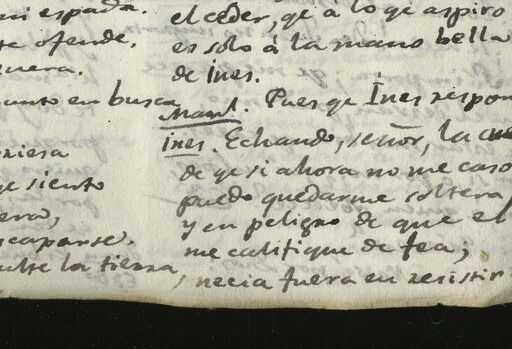 mi espada.
se ofende.
en busca
siento
escaparse.
la tierra,
el ceder, qe á lo qe aspiro
es solo á la mano bella
de Ines.
Manl. Pues qe Ines respon
Ines. Echando, señor, la cue
de qe si ahora no me caso
puedo quedarme soltera,
y en peligro de que el
me califique de fea;
necia fuera en resistir